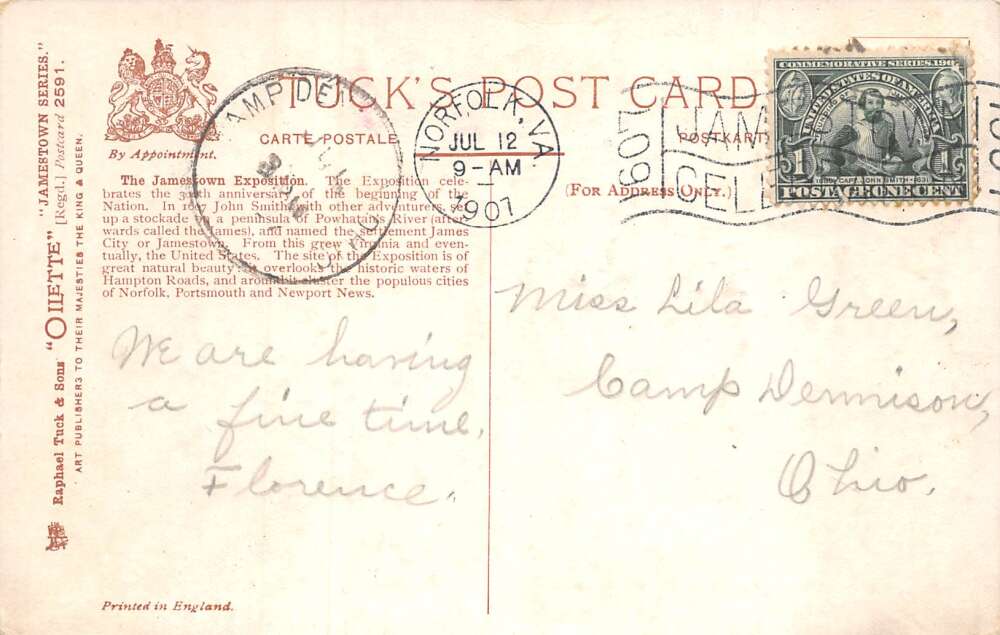 "JAMESTOWN SERIES."
Raphael Tuck & Sons' "OILETTE" [Regd.] Postcard 2591.
ART PUBLISHERS TO THEIR MAJESTIES THE KING & QUEEN.
By Appointment.
TUCK'S POST CARD
CARTE POSTALE
POSTKARTE
(FOR ADDRESS ONLY.)
NORFOLK, VA.
JUL 12
9-AM
1907
1607
JAM
CELE
1907
COMMEMORATIVE SERIES 1907
UNITED STATES OF AMERICA
1
1
1580 CAPT. JOHN SMITH 1631
POSTAGE ONE CENT
The Jamestown Exposition. The Exposition cele-
brates the 300th anniversary of the beginning of the
Nation. In 1607 John Smith with other adventurers, set
up a stockade on a peninsula of Powhatan's River (after-
wards called the James), and named the settlement James
City or Jamestown. From this grew Virginia and even-
tually, the United States. The site of the Exposition is of
great natural beauty: it overlooks the historic waters of
Hampton Roads, and around it cluster the populous cities
of Norfolk, Portsmouth and Newport News.
We are having
a fine time.
Florence.
Miss Lila Green,
Camp Dennison,
Ohio.
Printed in England.